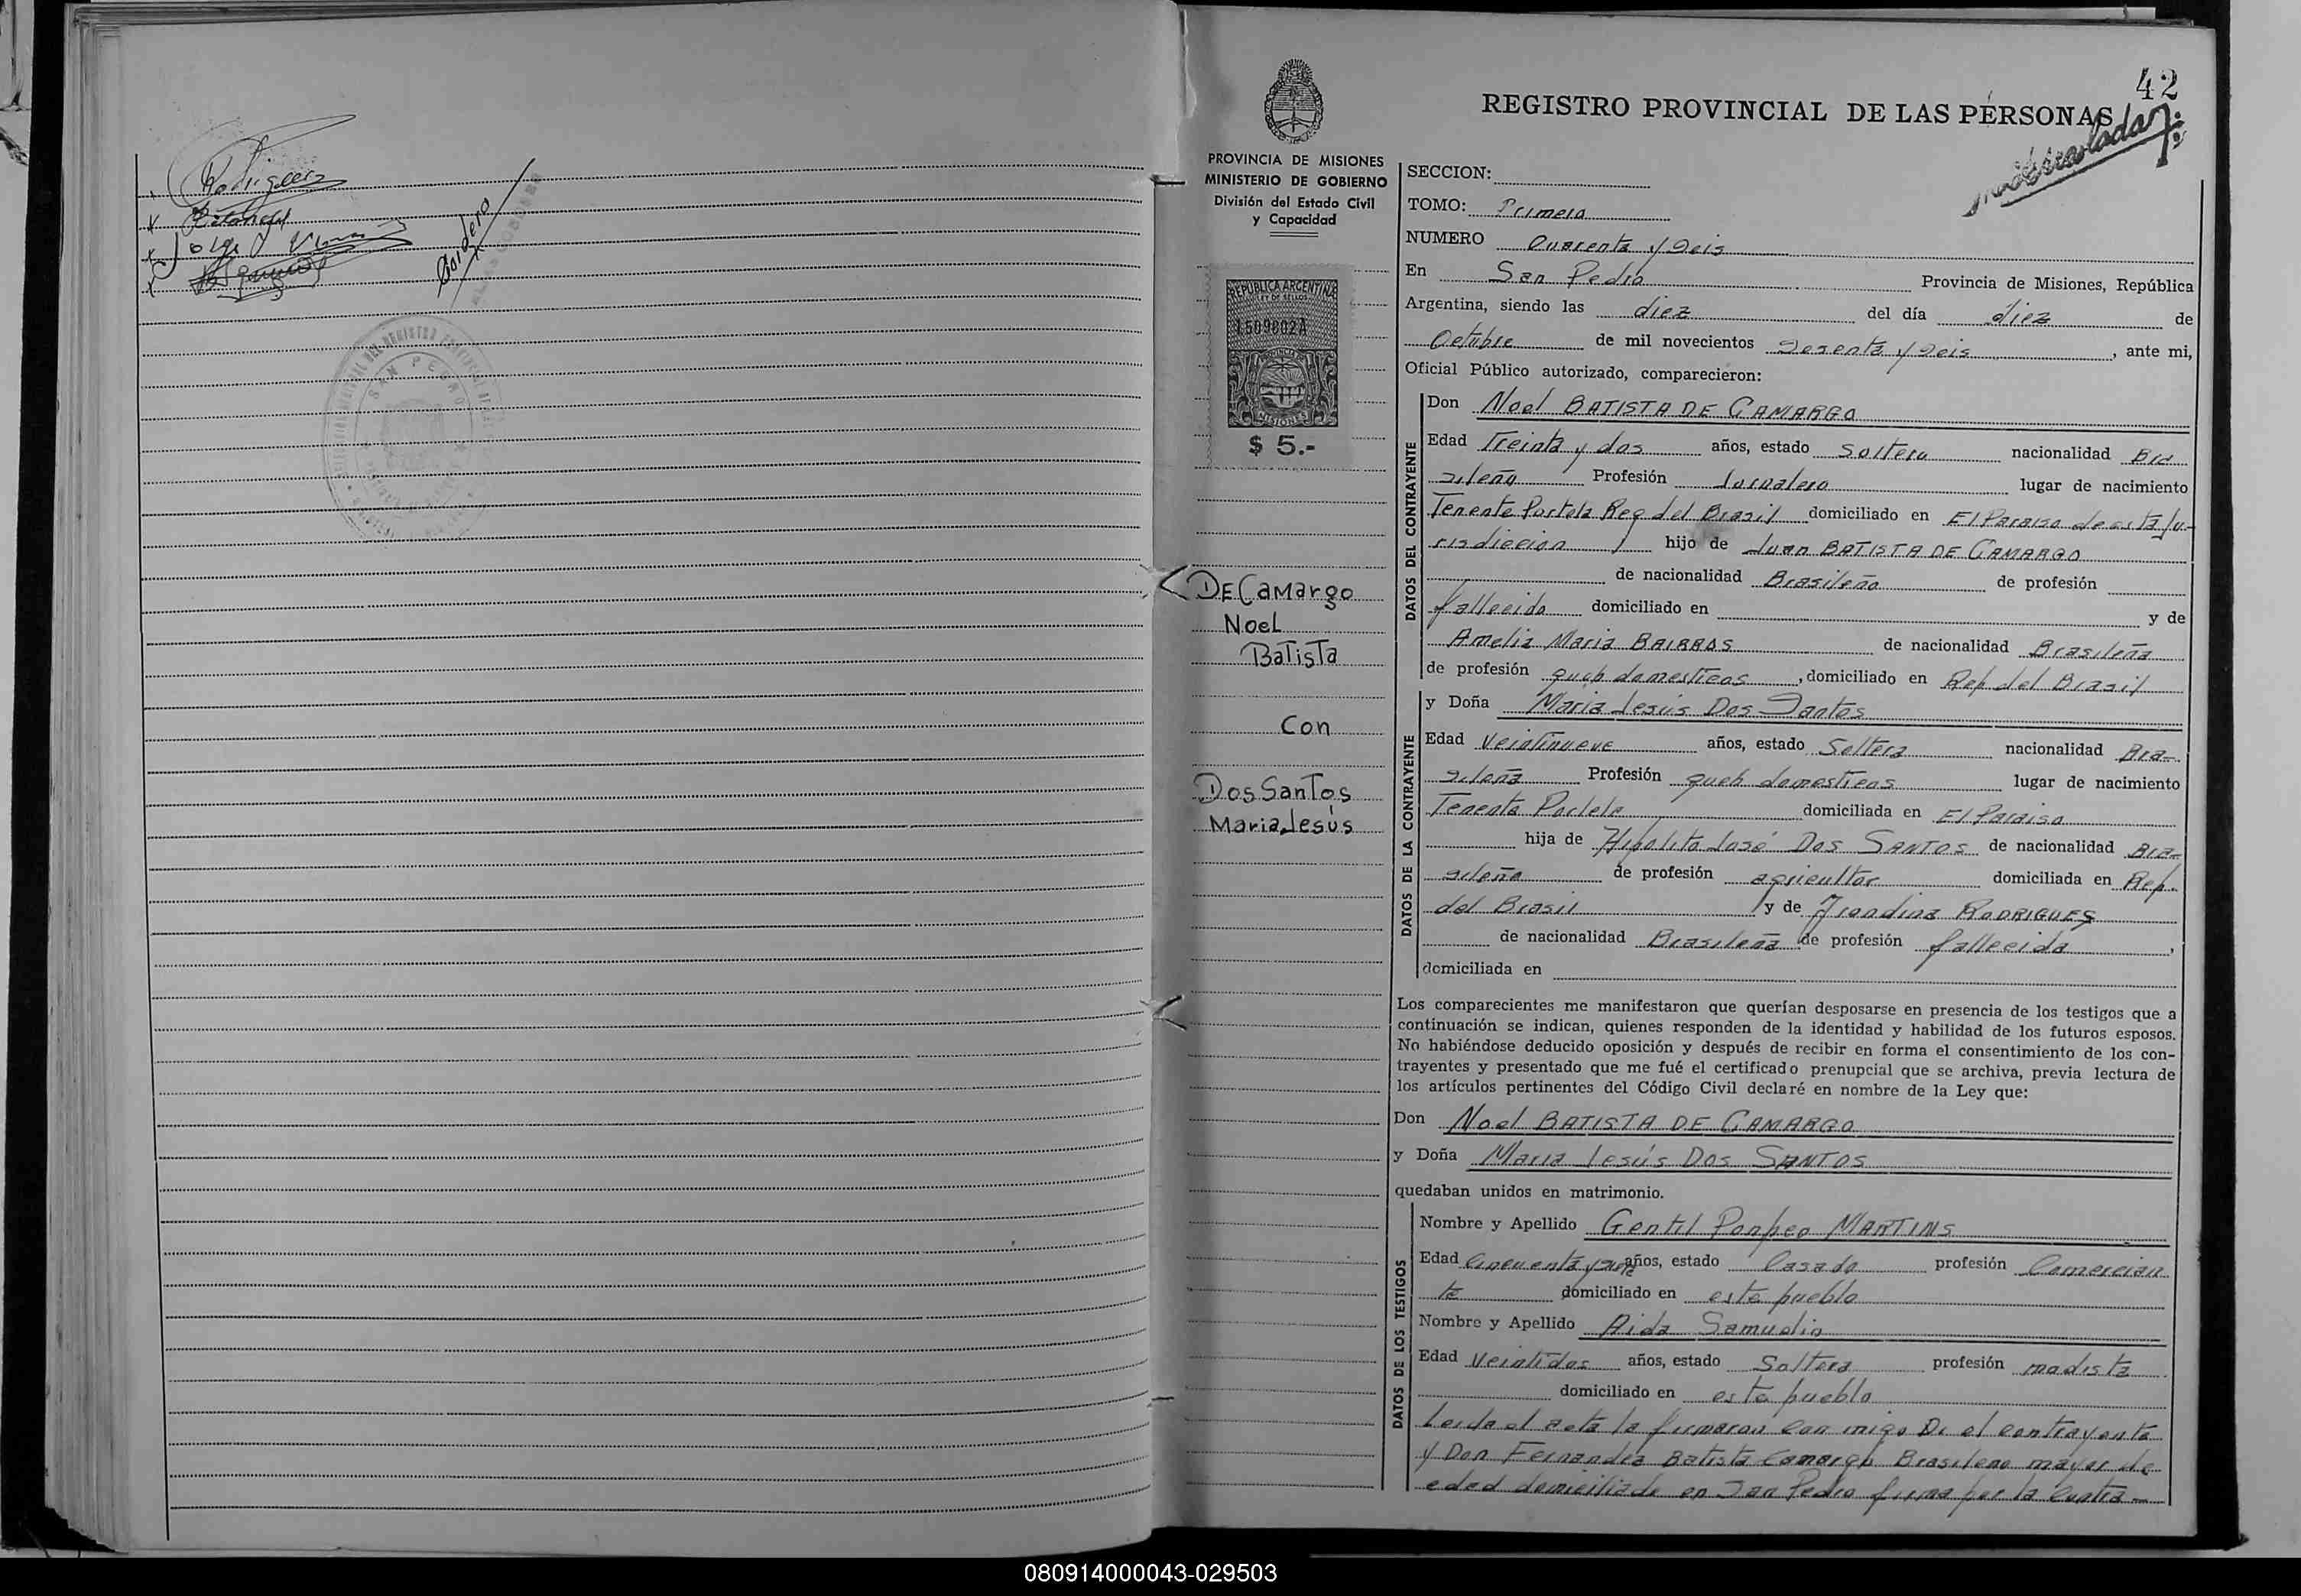 Rodriguez
Cordero
SAN PEDRO
42
REGISTRO PROVINCIAL DE LAS PERSONAS
PROVINCIA DE MISIONES
MINISTERIO DE GOBIERNO
División del Estado Civil
y Capacidad
REPUBLICA ARGENTINA
LEY DE SELLOS
1509802A
PROVINCIA DE
MISIONES
$ 5.-
DE Camargo
Noel
Batista
Con
Dos Santos
Maria Jesús
SECCION:
TOMO: Primero
NUMERO Cuarenta y Seis
En San Pedro Provincia de Misiones, República
Argentina, siendo las diez del día diez de
Octubre de mil novecientos Sesenta y Seis, ante mi,
Oficial Público autorizado, comparecieron:
DATOS DEL CONTRAYENTE
Don Noel BATISTA DE CAMARGO
Edad Treinta y dos años, estado Soltero nacionalidad Bra
sileño Profesión Jornalero lugar de nacimiento
Tenente Portela Rep del Brasil domiciliado en El Paraiso de esta Ju-
risdiccion hijo de Juan BATISTA DE CAMARGO
de nacionalidad Brasileño de profesión
fallecido domiciliado en y de
Amelia Maria BAIRROS de nacionalidad Brasileña
de profesión queh domesticos, domiciliado en Rep del Brasil
DATOS DE LA CONTRAYENTE
y Doña Maria Jesús Dos Santos
Edad Veintinueve años, estado Soltera nacionalidad Bra-
sileña Profesión queh domesticos lugar de nacimiento
Tenente Portela domiciliada en El Paraiso
hija de Hipolito José DOS SANTOS de nacionalidad Bra-
sileño de profesión agricultor domiciliada en Rep.
del Brasil y de RODRIGUES
de nacionalidad Brasileña de profesión fallecida,
domiciliada en
Los comparecientes me manifestaron que querían desposarse en presencia de los testigos que a
continuación se indican, quienes responden de la identidad y habilidad de los futuros esposos.
No habiéndose deducido oposición y después de recibir en forma el consentimiento de los con-
trayentes y presentado que me fué el certificado prenupcial que se archiva, previa lectura de
los artículos pertinentes del Código Civil declaré en nombre de la Ley que:
Don Noel BATISTA DE CAMARGO
y Doña Maria Jesús DOS SANTOS
quedaban unidos en matrimonio.
DATOS DE LOS TESTIGOS
Nombre y Apellido Gentil Ponpeo MARTINS
Edad Cincuenta y años, estado Casado profesión Comercian
te domiciliado en este pueblo
Nombre y Apellido Aida Samudio
Edad Veintidos años, estado Soltera profesión modista
domiciliado en este pueblo
Leida el acta la firmaron con migo el contrayente
y Don Batista Camargo Brasileno mayor de
edad domiciliado en San Pedro firma por la Contra-
080914000043-029503